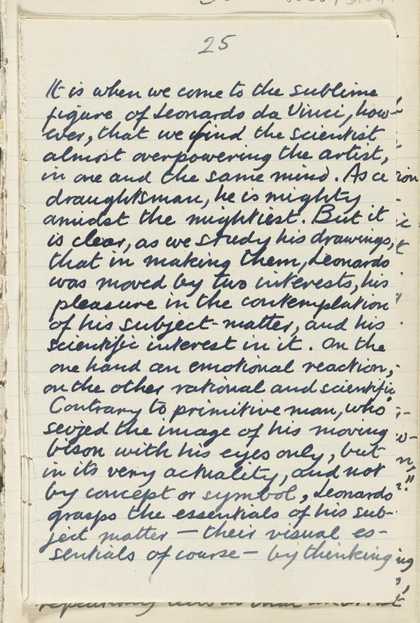 25
It is when we come to the sublime
figure of Leonardo da Vinci, how-
ever, that we find the scientist
almost overpowering the artist,
in one and the same mind. As a
draughtsman, he is mighty
amidst the mightiest. But it
is clear, as we study his drawings,
that in making them, Leonardo
was moved by two interests, his
pleasure in the contemplation
of his subject-matter, and his
scientific interest in it. On the
one hand an emotional reaction,
on the other rational and scientific.
Contrary to primitive man, who
seized the image of his moving
bison with his eyes only, but
in its very actuality, and not
by concept or symbol, Leonardo
grasps the essentials of his sub-
ject matter — their visual es-
sentials of course — by thinking